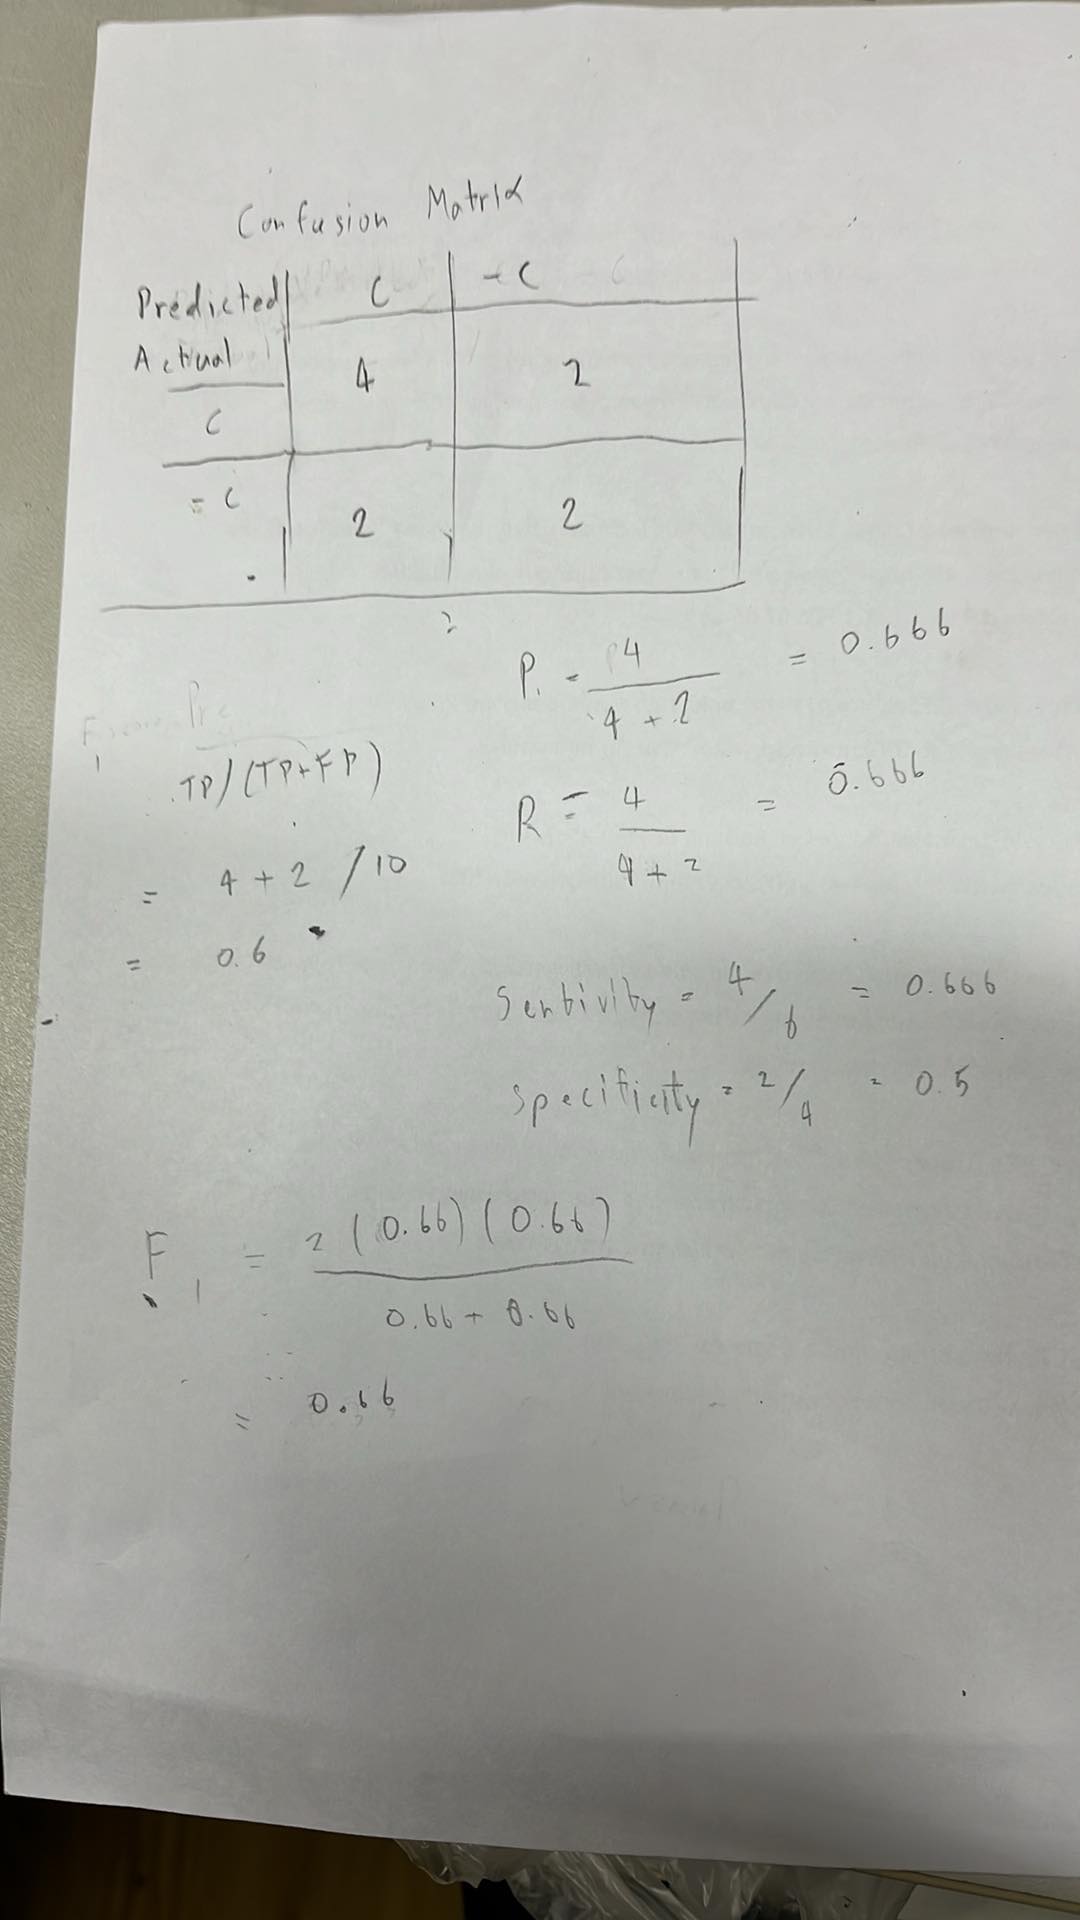 Confusion Matrix
Predicted C -C
Actual 4 2
C
= C 2 2
P. = 4 / 4 + 2 = 0.666
TP/(TP+FP)
R = 4 / 4 + 2 = 0.666
= 4 + 2 / 10
= 0.6
Sentivity = 4/6 = 0.666
Specificity = 2/4 = 0.5
F1 = 2 (0.66) (0.66) / 0.66 + 0.66
= 0.66